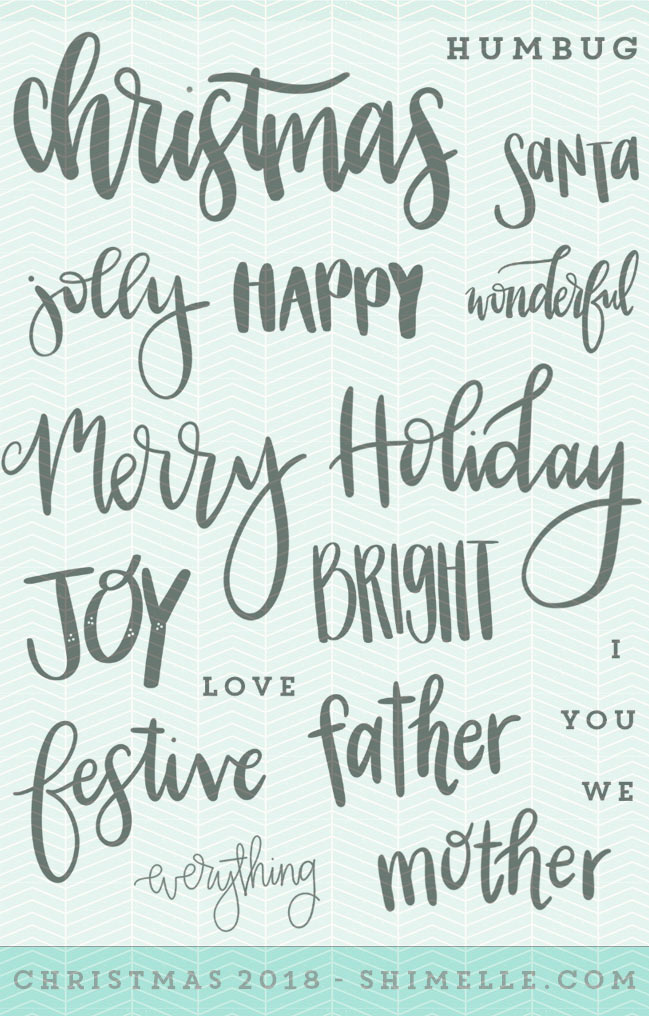 HUMBUG
christmas
SANTA
jolly HAPPY wonderful
Merry Holiday
JOY BRIGHT
I
LOVE
father YOU
festive
WE
everything mother
CHRISTMAS 2018 - SHIMELLE.COM